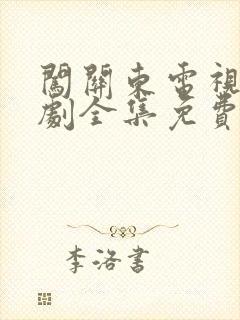 闖關東電視
劇全集免費
李洛書